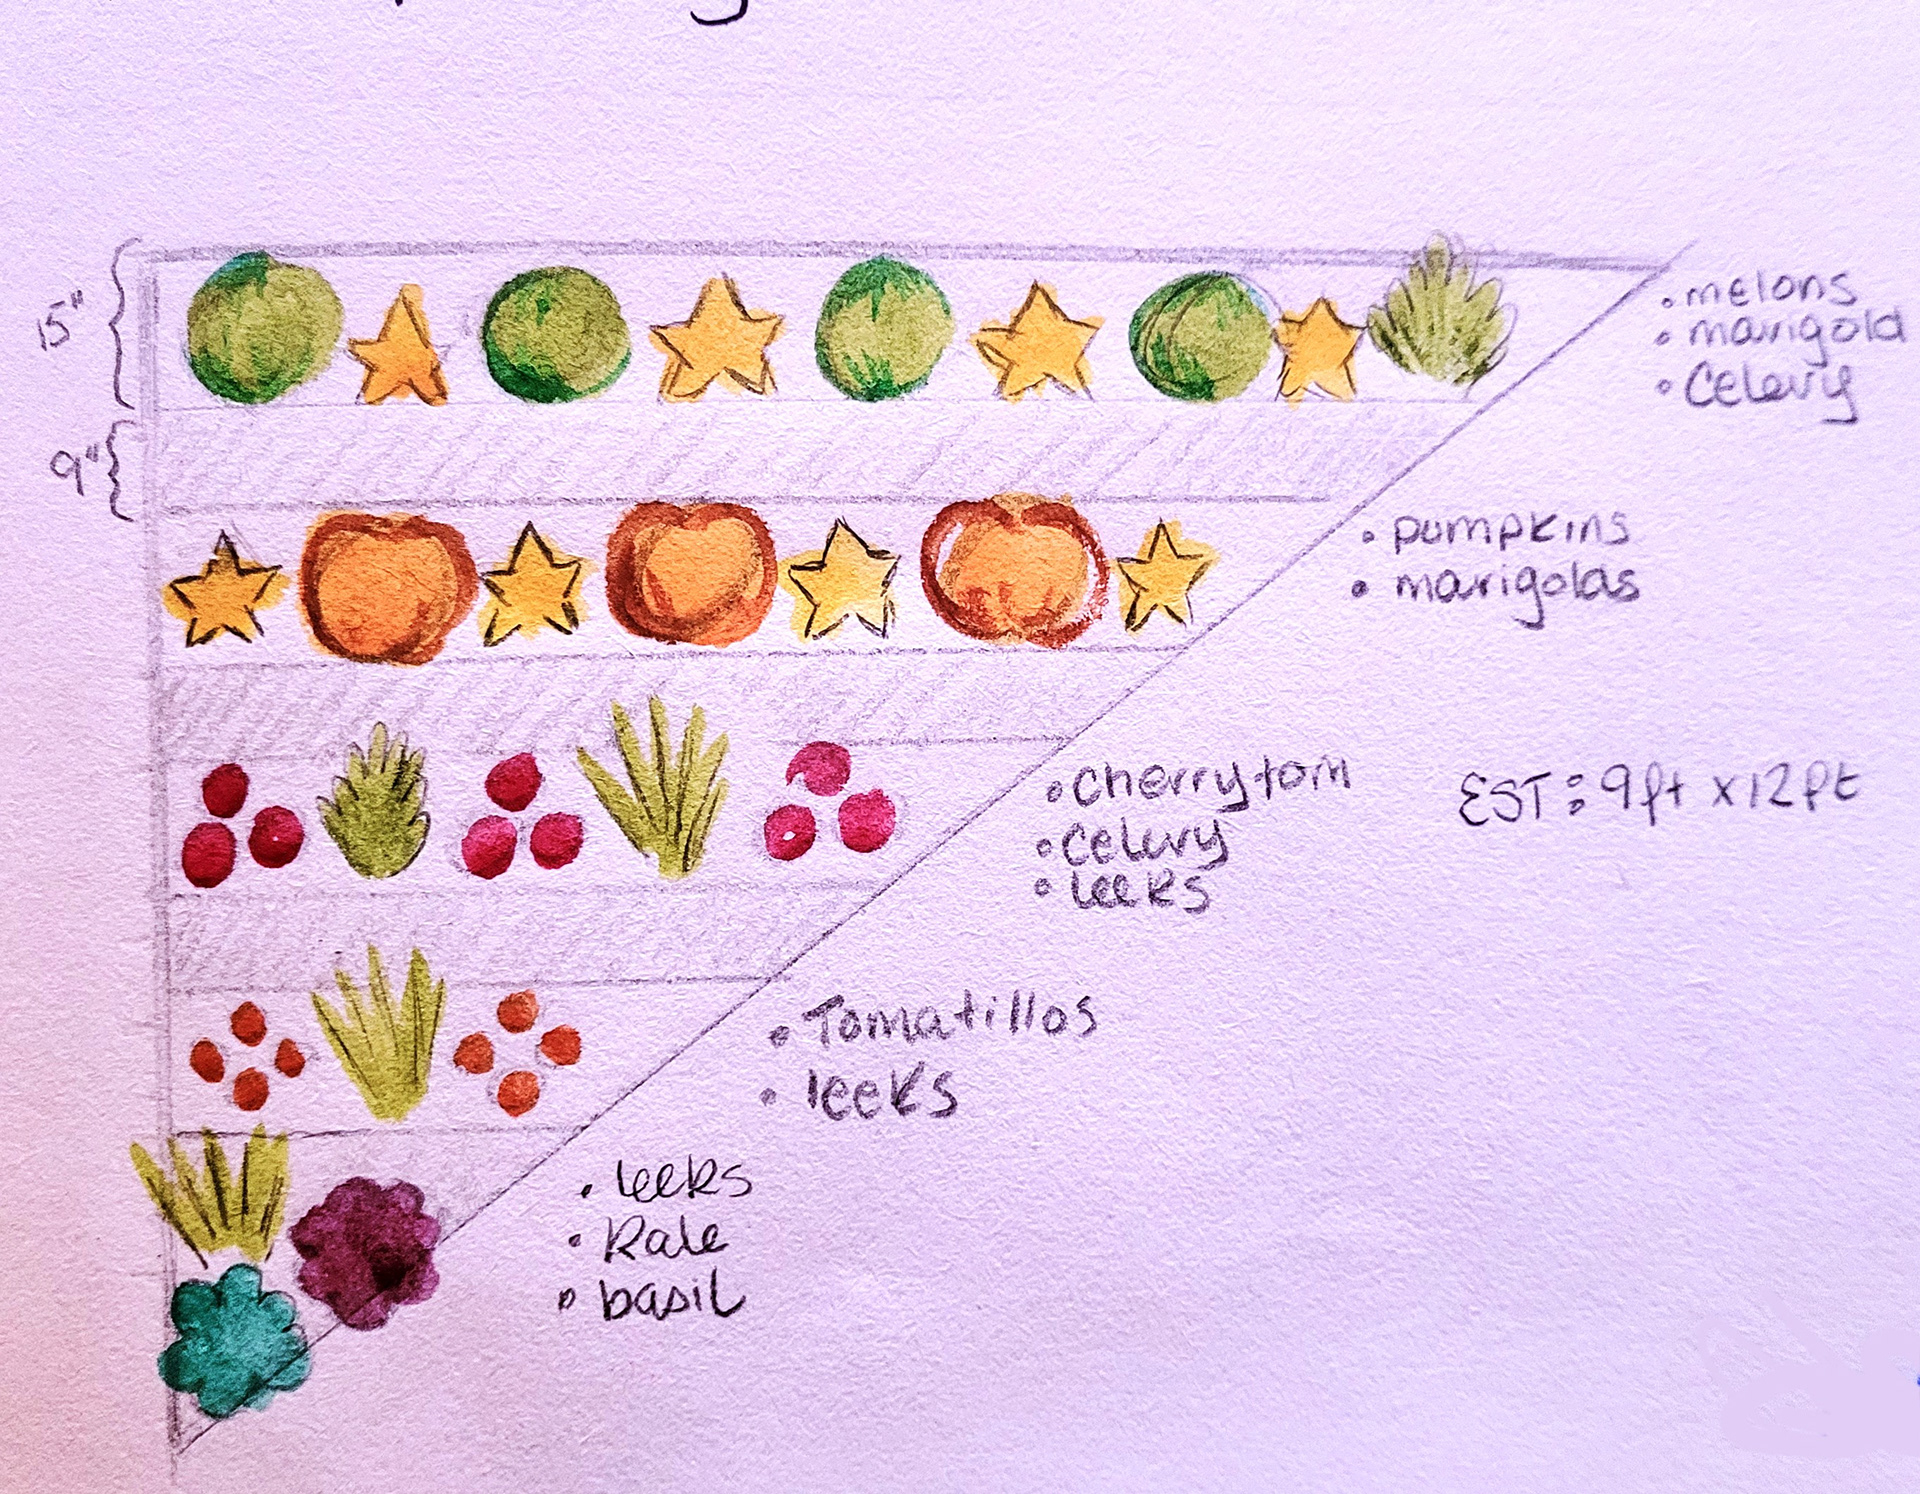 15"
9"
• melons
• marigold
• Celery
• pumpkins
• marigolds
• Cherry tom
• Celery
• leeks
EST: 9ft x 12ft
• Tomatillos
• leeks
• leeks
• Kale
• basil